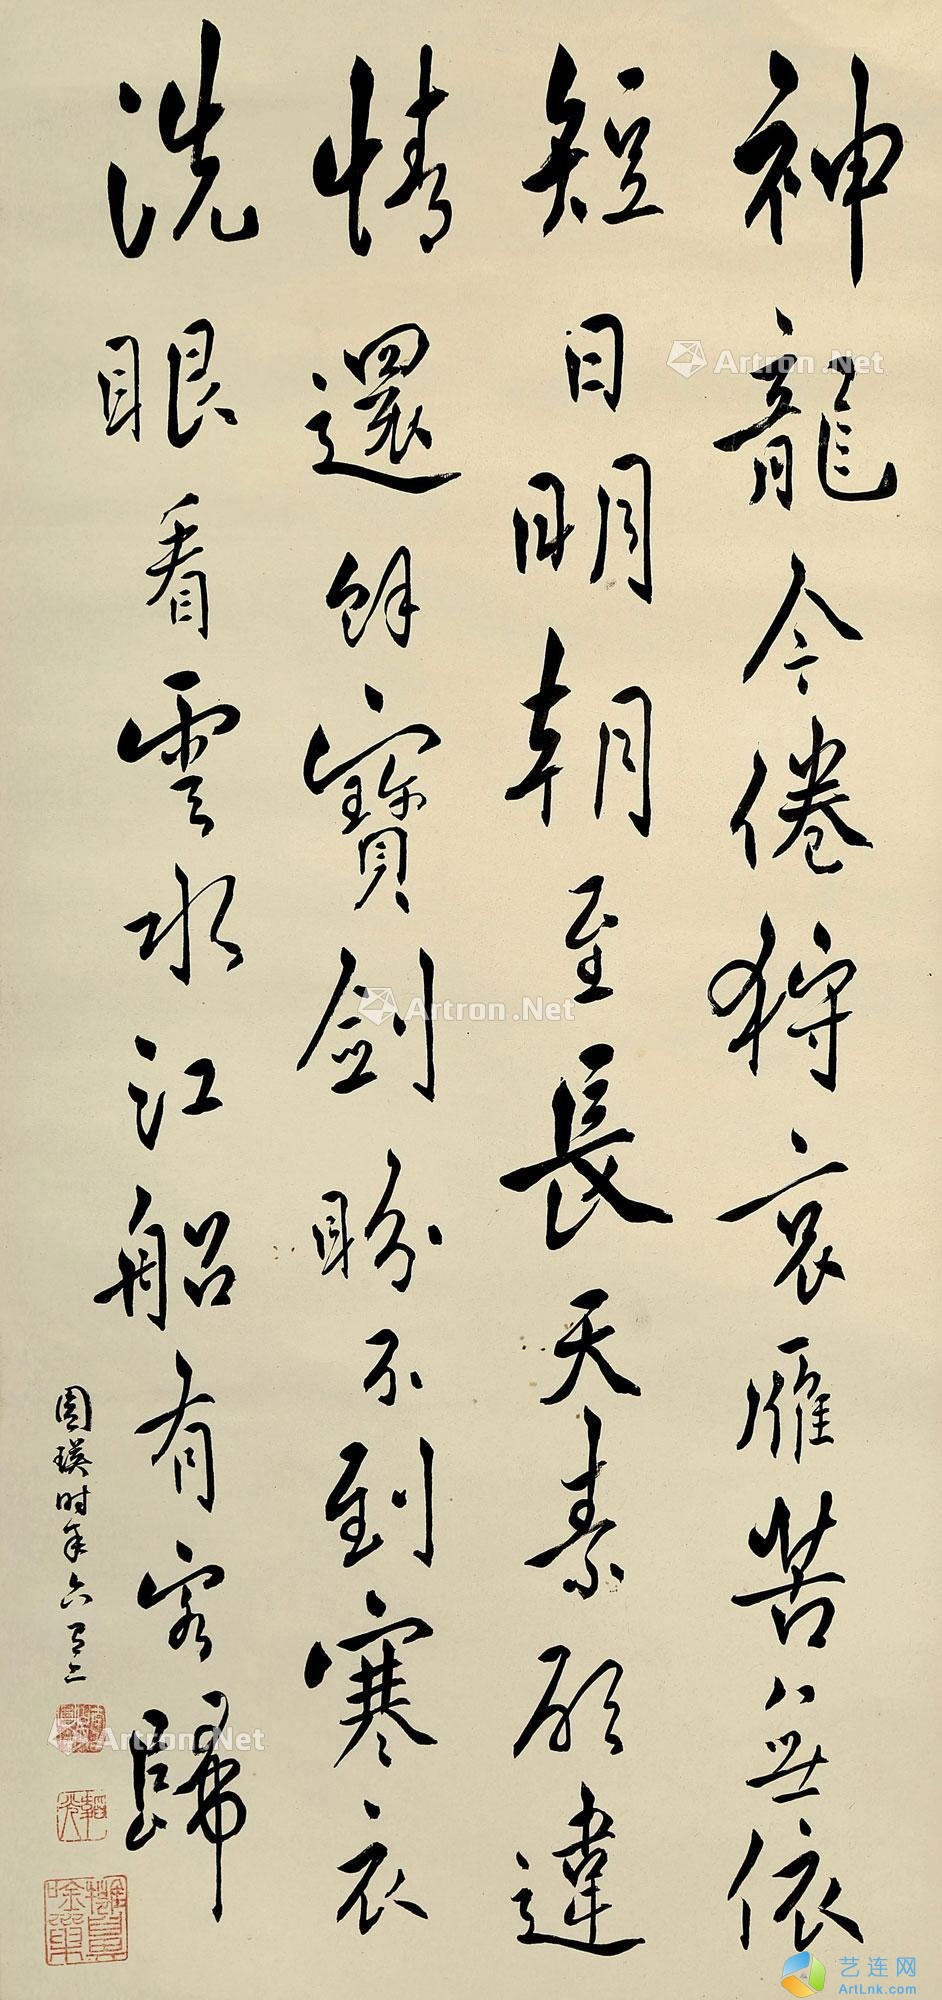 神龍今倦狩哀雁苦無依
短日明朝至長天素願違
情還餘寶劍盼不到寒衣
洗眼看雲水江船有客歸
周瑛时年六
Artron.Net
Artron.Net
Artron.Net
艺连网
ArtLnk.com